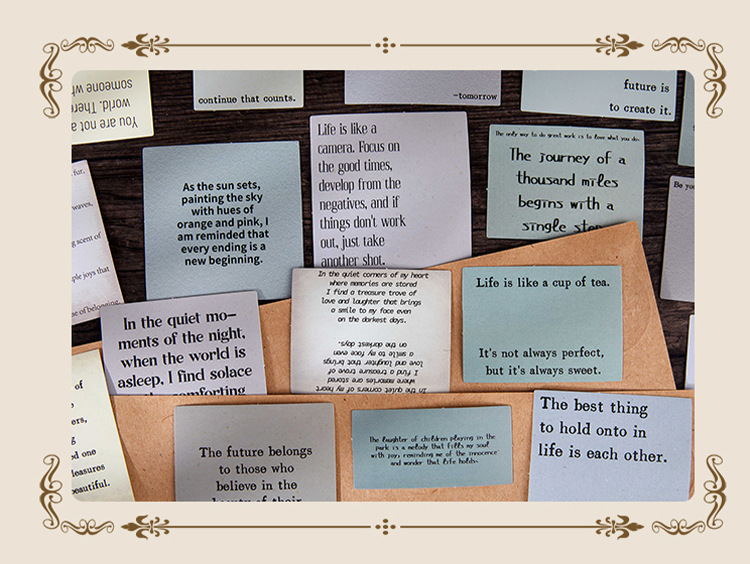 You are not a
world. There
someone wh
continue that counts.
—tomorrow
future is
to create it.
fur.
waves,
g scent of
ple joys that
se of belonging.
As the sun sets,
painting the sky
with hues of
orange and pink, I
am reminded that
every ending is a
new beginning.
Life is like a
camera. Focus on
the good times,
develop from the
negatives, and if
things don't work
out, just take
another shot.
The only way to do great work is to love what you do.
The journey of a
thousand miles
begins with a
single step
Be yo
In the quiet mo—
ments of the night,
when the world is
asleep, I find solace
comforting
In the quiet corners of my heart
where memories are stored
I find a treasure trove of
love and laughter that brings
a smile to my face even
on the darkest days.
In the quiet corners of my heart
where memories are stored
I find a treasure trove of
love and laughter that brings
a smile to my face even
on the darkest days.
Life is like a cup of tea.
It's not always perfect,
but it's always sweet.
of
ers,
g
d one
leasures
beautiful.
The future belongs
to those who
believe in the
beauty of their
The laughter of children playing in the
park is a melody that fills my soul
with joy, reminding me of the innocence
and wonder that life holds.
The best thing
to hold onto in
life is each other.